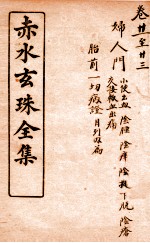 卷廿至廿三
婦人門 小便出血 陰腫 陰痒 陰挺下脫 陰瘡
交接輒血出痛
胎前一切病證
赤水玄珠全集